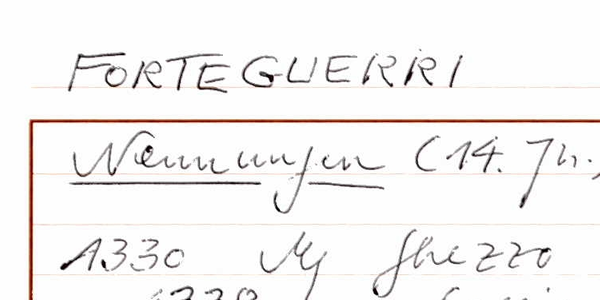 FORTEGUERRI
Nennungen (14. Jh.)
1330 Mg Ghezzo
1338